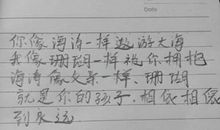 Date
你像海涛一样遨游大海
我像珊瑚一样被你拥抱
海涛像父亲一样、珊瑚
就是你的孩子.相依相偎
到永远